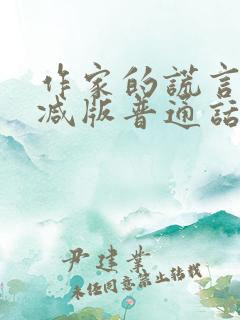 作家的谎言
减版普通话
尹建业
未经同意禁止转载